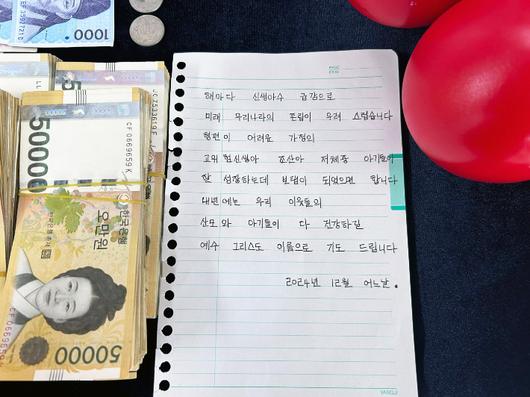 1000
50000
CF0669659K
한국은행
오만원
50000
해마다 신생아수 급감으로
미래 우리나라의 존립이 우려 스럽습니다
형편이 어려운 가정의
고위험신생아 조산아 저체중 아기들이
잘 성장하는데 보탬이 되었으면 합니다
내년에는 우리 이웃들의
산모와 아기들이 다 건강하길
예수 그리스도 이름으로 기도 드립니다
2024년 12월 어느날.